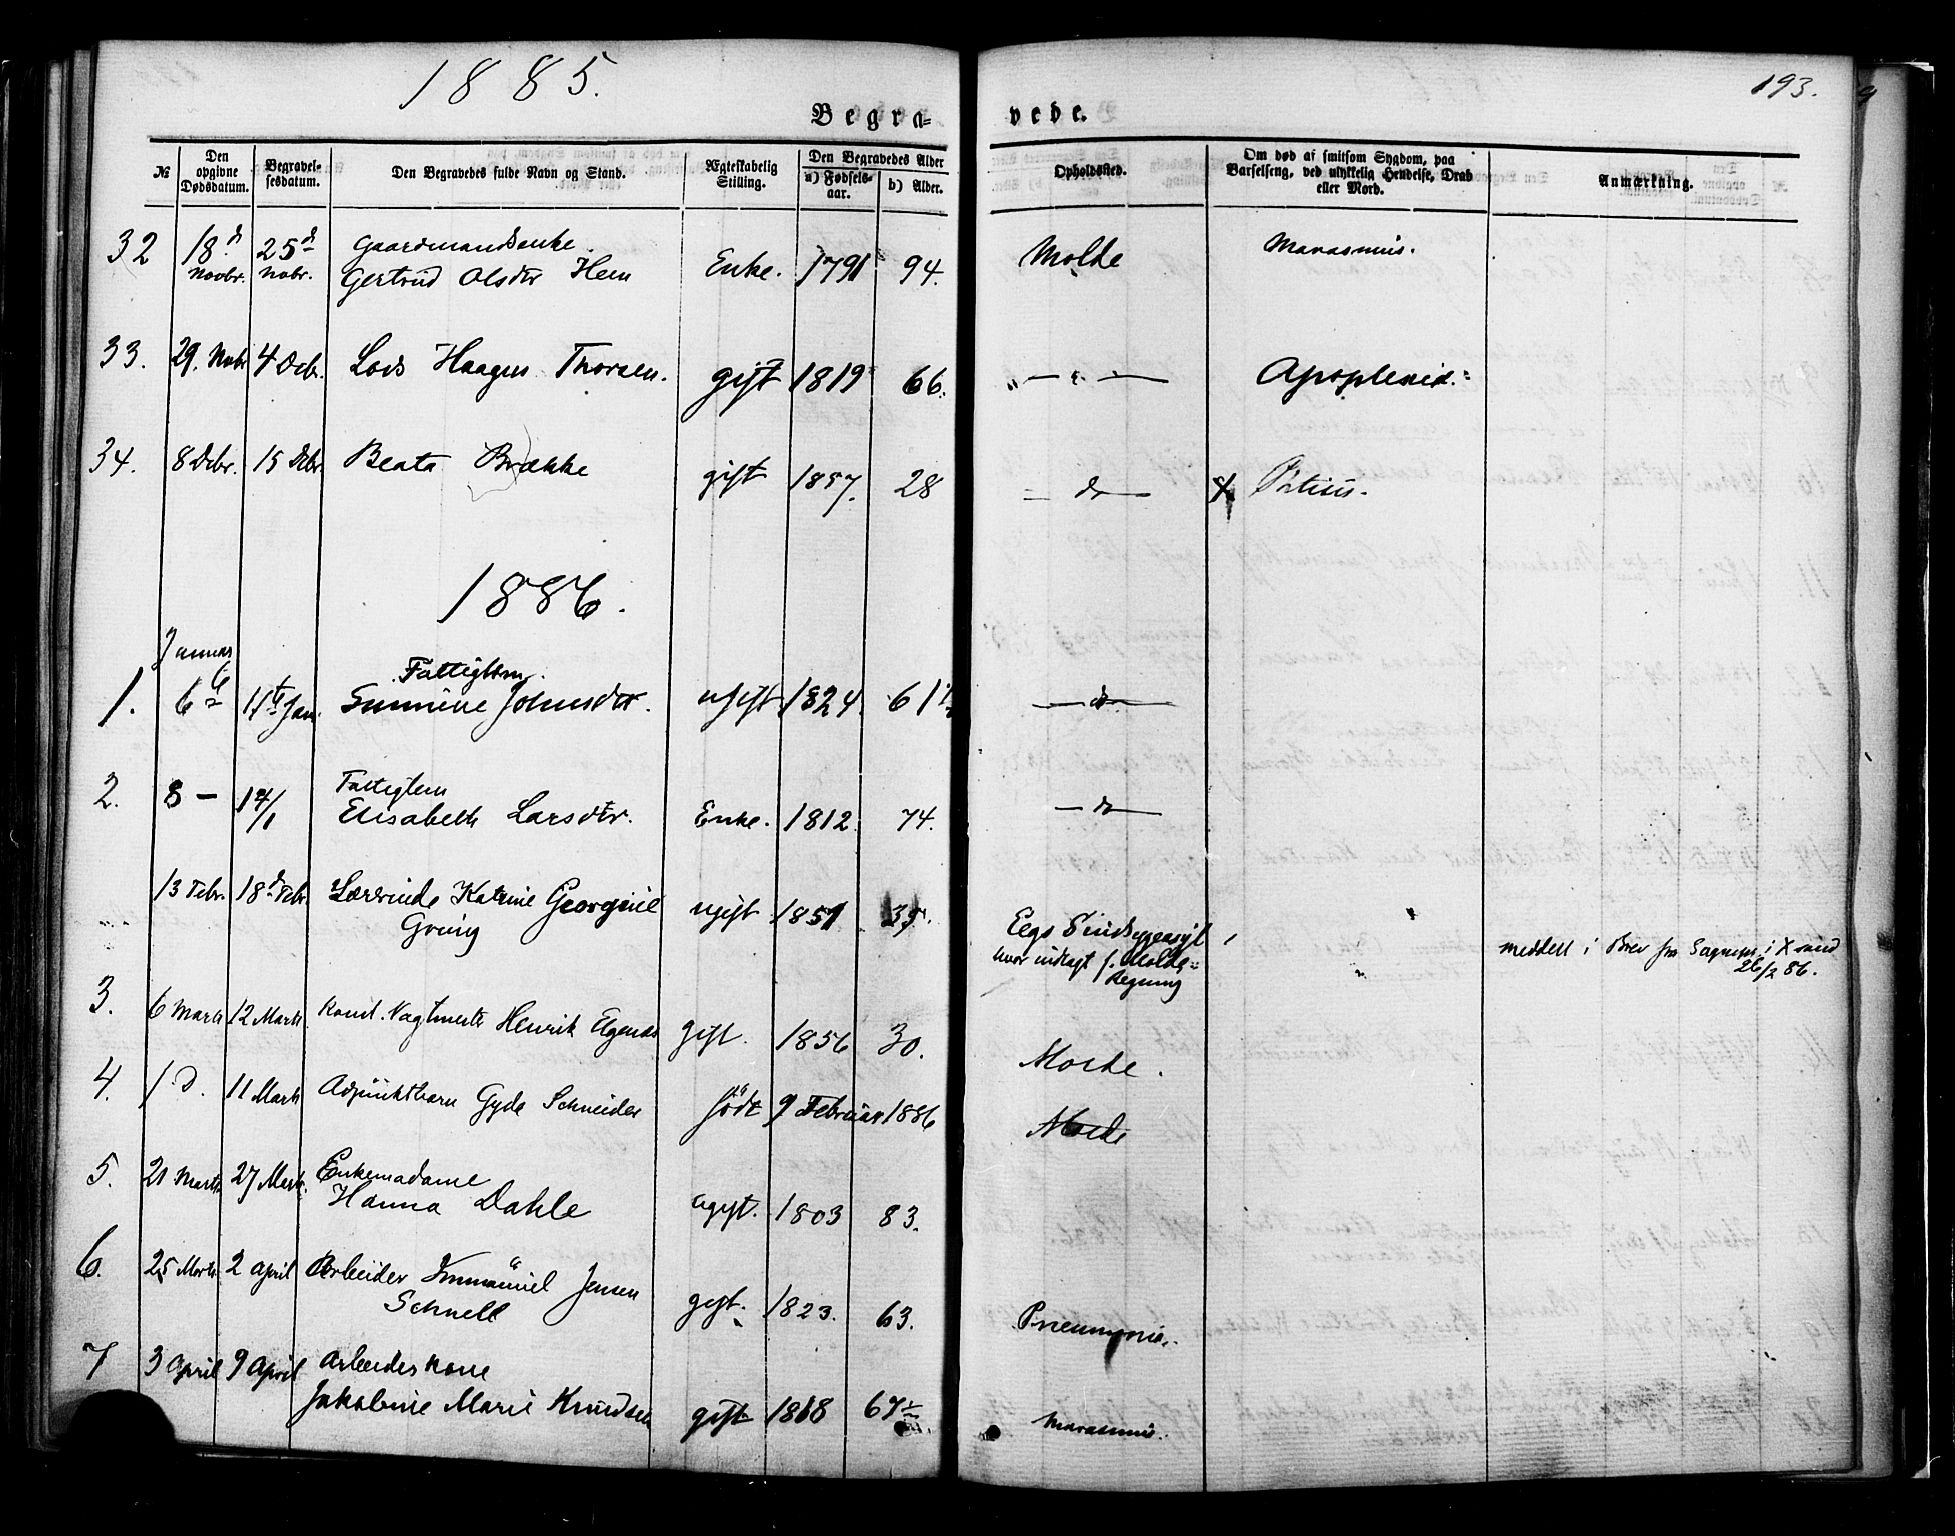 1885.
193.
Begra=
vede.
№
Den opgivne Dødsdatum.
Begravelsesdatum.
Den Begravedes fulde Navn og Stand.
Ægteskabelig Stilling.
Den Begravedes Alder
a) Fødselsaar.
b) Alder.
Opholdssted.
Om død af smitsom Sygdom, paa Barselseng, ved ulykkelig Hendelse, Drab eller Mord.
Anmærkning.
32 18d Novbr. 25d Nobr. Gaardmandsenke
Gertrud Olsdtr Hem Enke. 1791 94. Molde Marasmus.
33. 29. Nobr 4 Decbr. Lods Haagen Thorsen. gift 1819 66. „ — „ — Apoplexia.
34. 8 Decbr. 15 Decbr Beata Brække gift 1857. 28 — do — X Phtisis.
1886.
Januar
1. 6te 11te Jan. Fattiglem
Johnsdtr. ugift 1824. 61 — do —
2. 8 — 14/1 Fattiglem
Elisabeth Larsdtr. Enke. 1812. 74. — do —
13 Febr. 18d Febr Lærerinde Katrine Georgine
Grung ugift 1851 35. Eegs Sindsygeasyl
hvor indlagt f. Molde
Regning
meddelt i Brev fra Sognepr. i X sand
26/2 86.
3. 6 Marts 12 Marts Konst. Vagtmester Henrik gift. 1856 30. Molde.
4. 1 D. 11 Marts Adjunktbarn Gyda Schneider født 9 Februar 1886 Molde
5. 21 Marts 27 Marts. Enkemadame
Hanna Dahle ugift. 1803 83.
6. 25 Marts 2 April Arbeider Immanuel Jensen
Schnell gift. 1823. 63. Pneumonia.
7 3 April 9 April Arbeiderskone
Jakobine Marie Knudsen gift 1818 67 Marasmus.